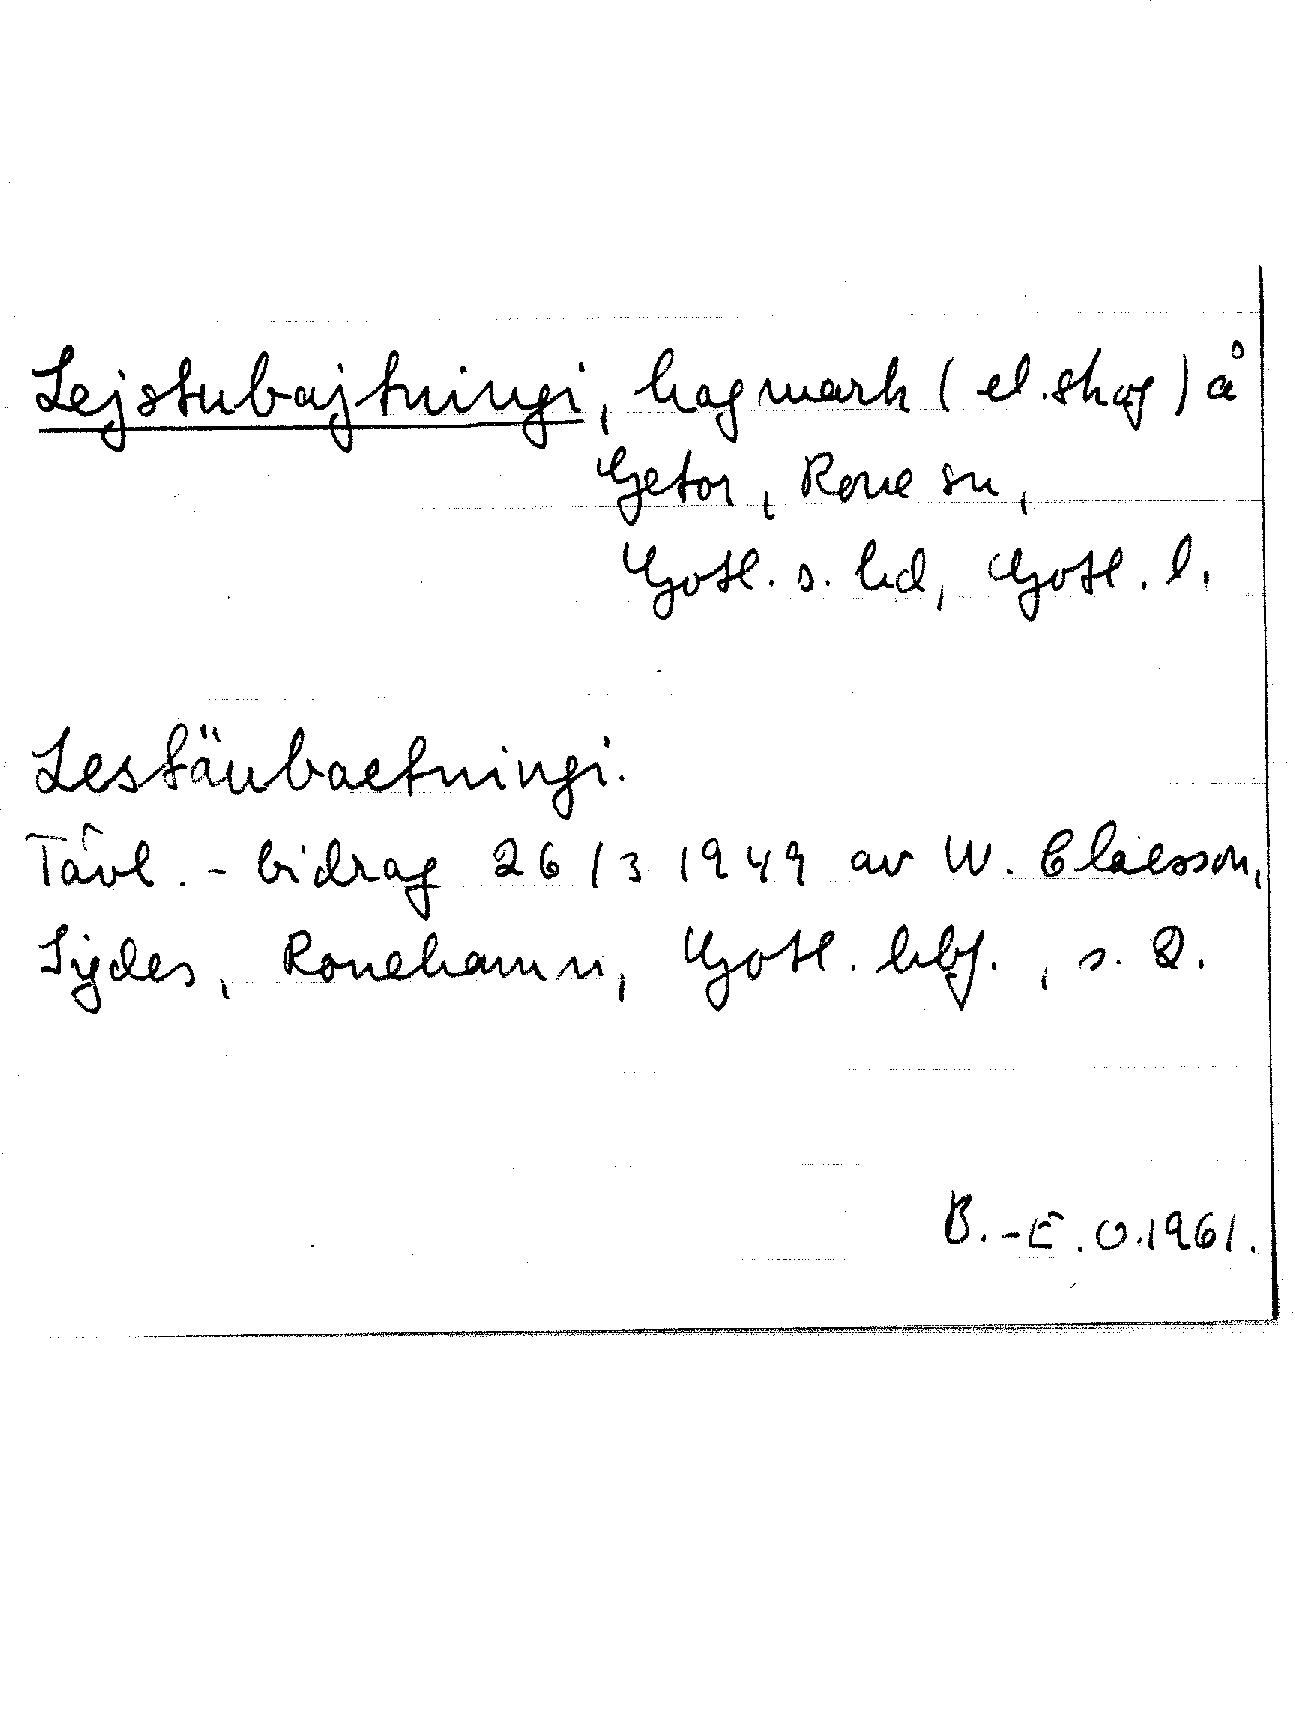 Lejstubajtningi, hagmark (el. skog) å
Getor, Rone sn,
Gotl. s. hd, Gotl. l.
Lestäubaetningi.
Tävl. - bidrag 26/3 1949 av W. Claesson,
Sigdes, Ronehamn, Gotl. hbf., s. 2.
B.-E. O. 1961.